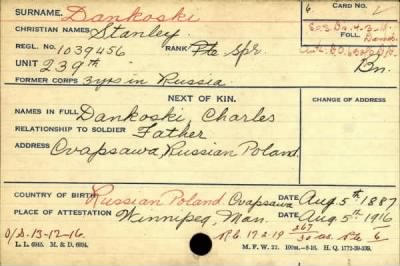 SURNAME. Dankoski CARD NO.
CHRISTIAN NAMES Stanley
FOLL.
REGL. NO. 1039456 RANK Pte Spr
UNIT 239th Bn.
FORMER CORPS 3 yrs in Russia
NEXT OF KIN. CHANGE OF ADDRESS
NAMES IN FULL Dankoski, Charles
RELATIONSHIP TO SOLDIER Father
ADDRESS Ovapsawa, Russian Poland
COUNTRY OF BIRTH Russian Poland Ovapsawa DATE Aug 5th 1887
PLACE OF ATTESTATION Winnipeg, Man. DATE Aug 5th 1916
O/D. 13-12-16.
L. L. 6945. M. & D. 6934. M. F. W. 22. 100M.-8-16. H. Q. 1772-39-339.